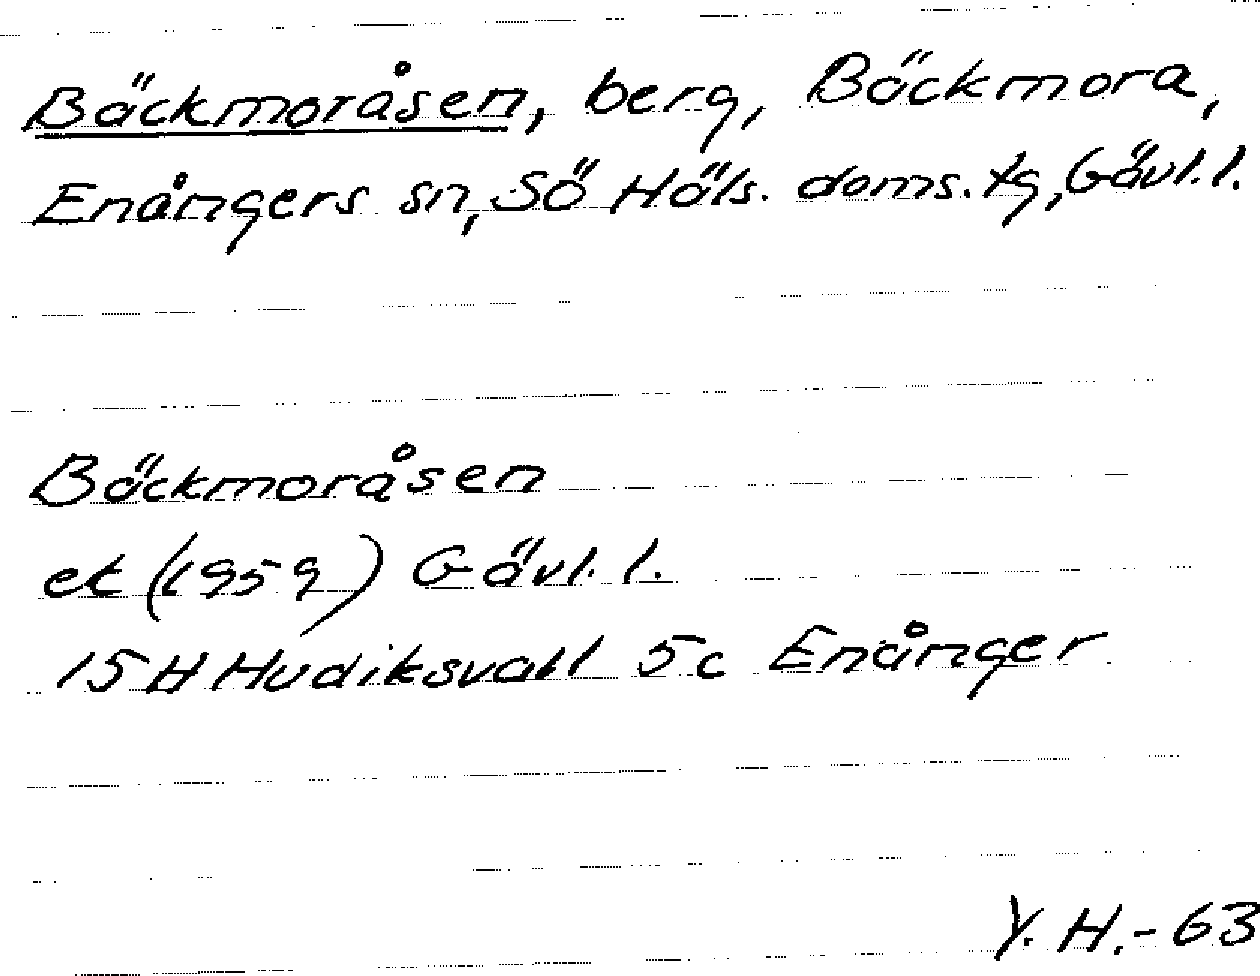 Bäckmoråsen, berg, Bäckmora,
Enångers sn, Sö Häls. doms. tg, Gävl. l.
Bäckmoråsen
ek (1959) Gävl. l.
15 H Hudiksvall 5c Enånger
Y. H. - 63